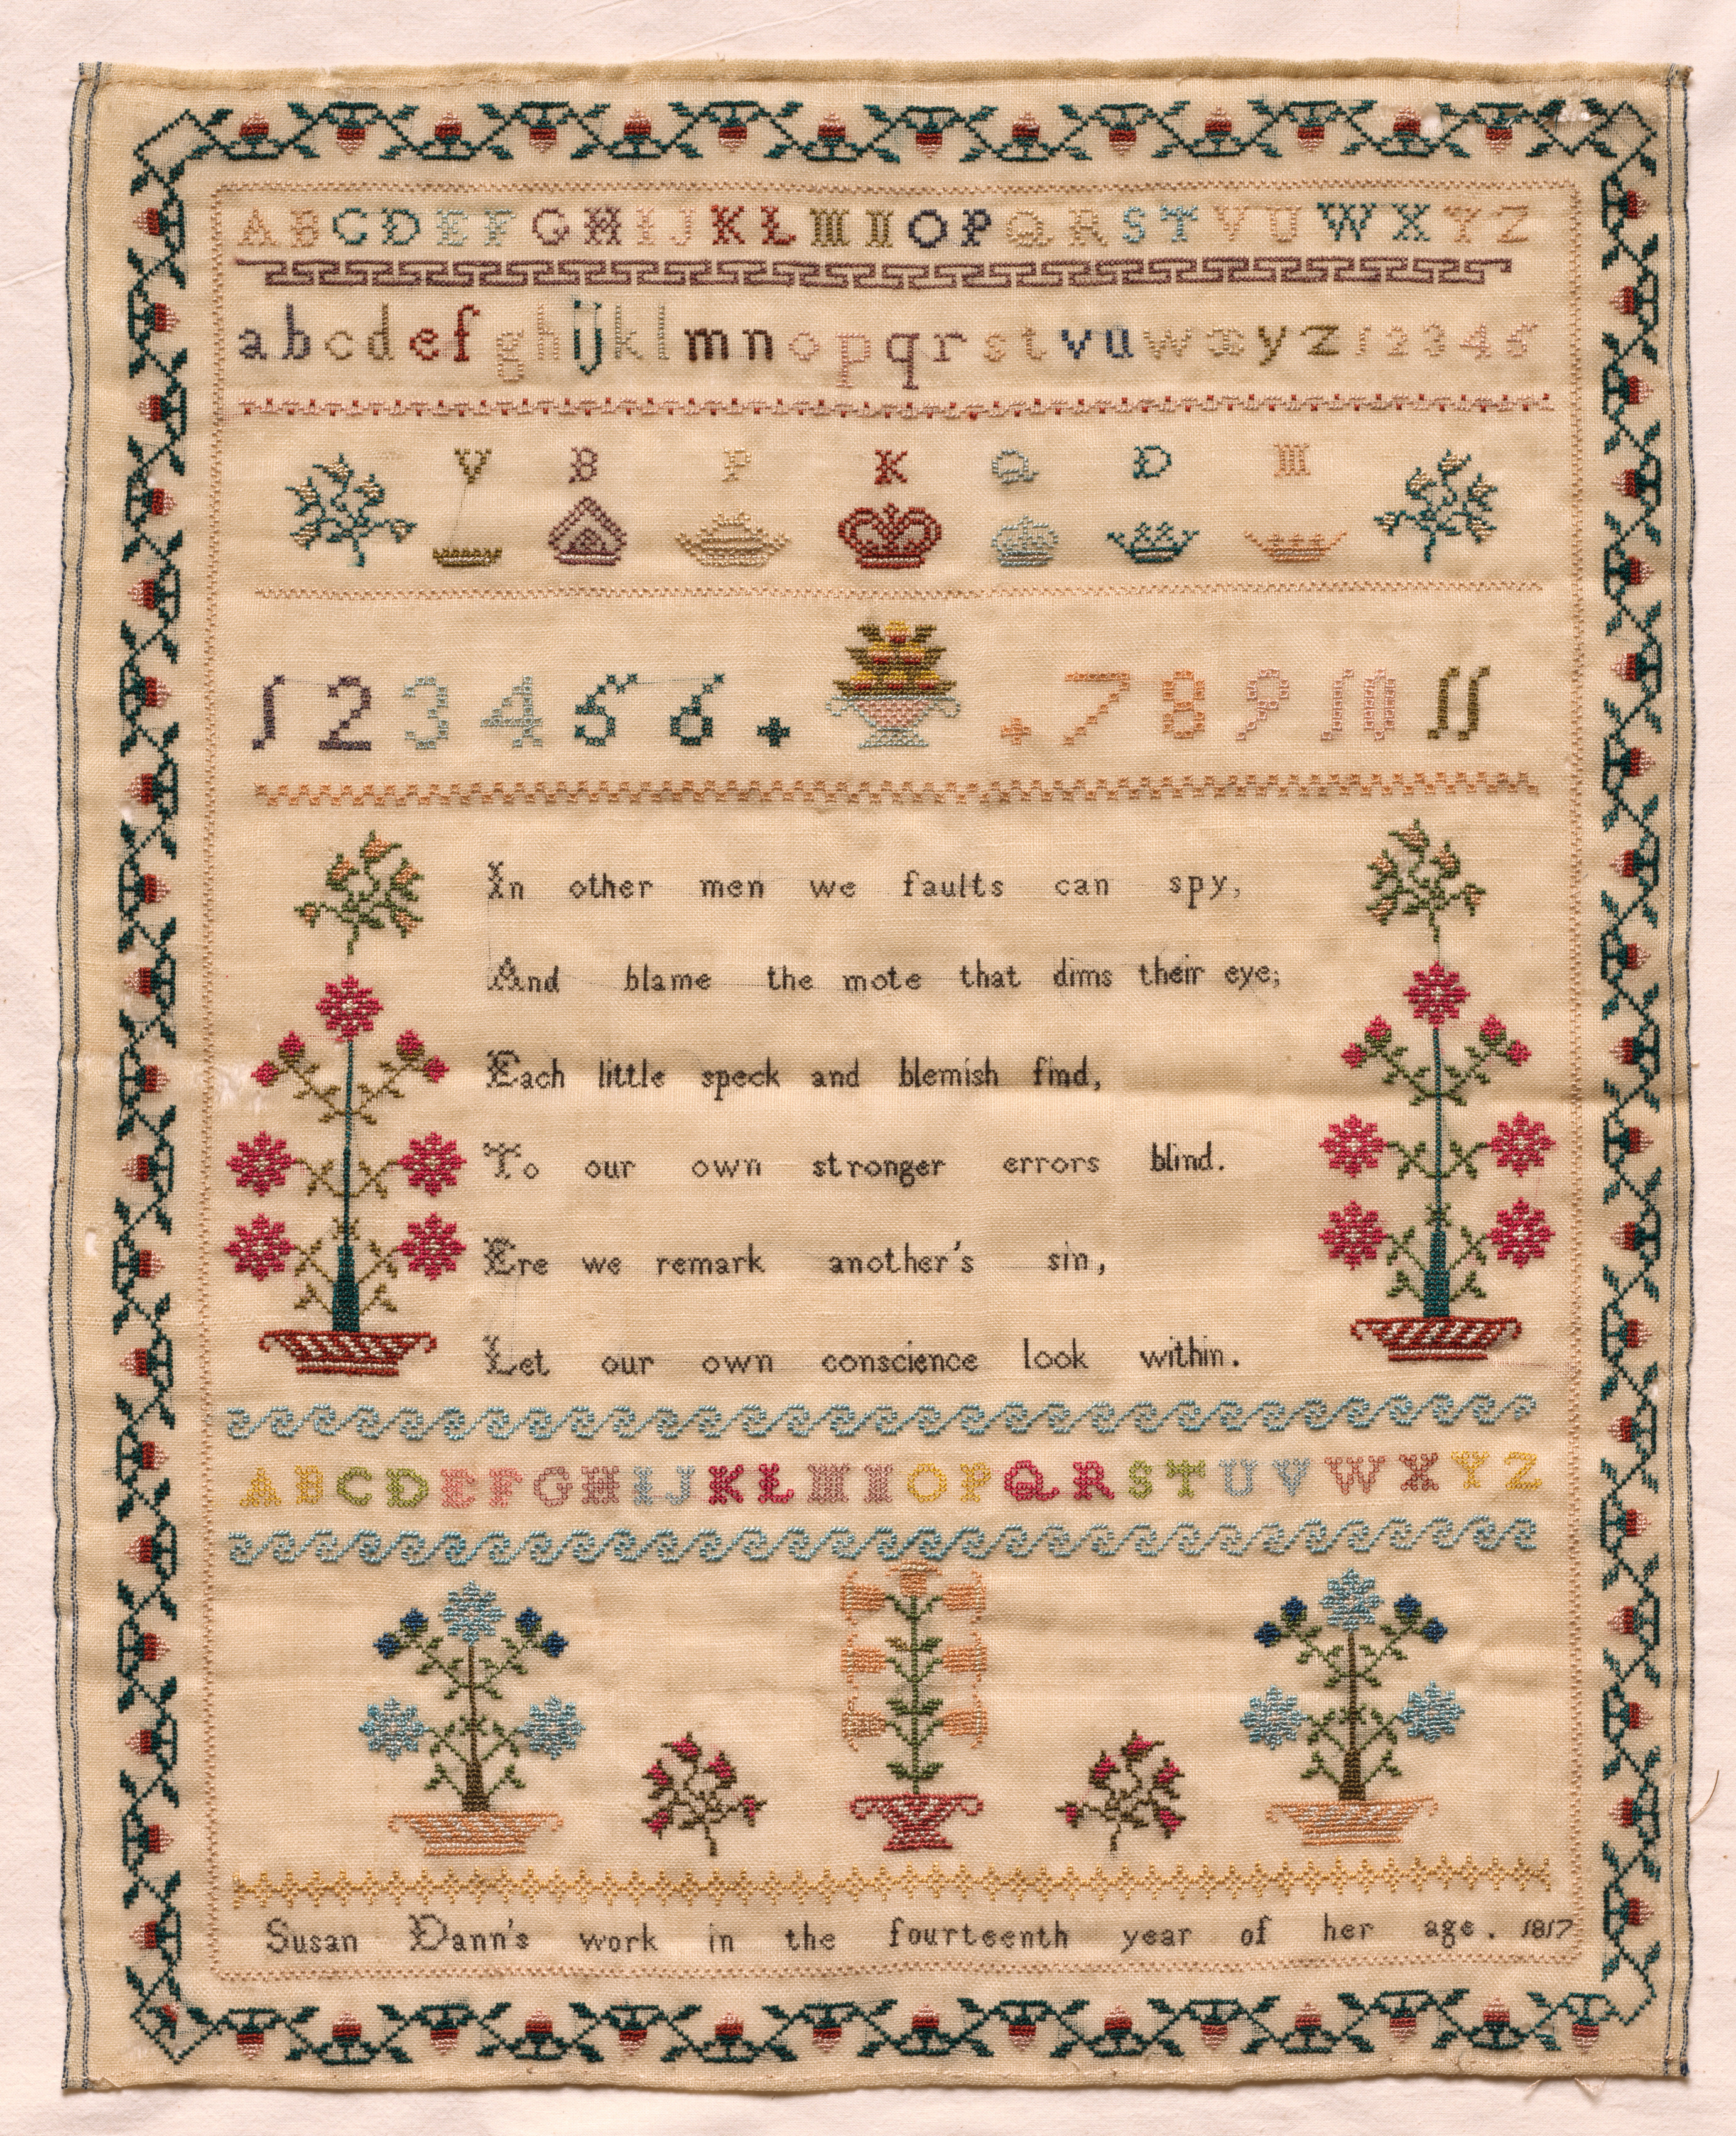 A B C D E F G H I J K L M N O P Q R S T V U W X Y Z
a b c d e f g h i j k l m n o p q r s t v u w x y z 1 2 3 4 5
V B P K Q D M
1 2 3 4 5 6 . . 7 8 9 10 11
In other men we faults can spy,
And blame the mote that dims their eye;
Each little speck and blemish find,
To our own stronger errors blind.
Ere we remark another's sin,
Let our own conscience look within.
A B C D E F G H I J K L M N O P Q R S T U V W X Y Z
Susan Dann's work in the fourteenth year of her age. 1817